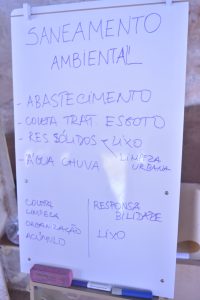 SANEAMENTO
AMBIENTAL
- ABASTECIMENTO
- COLETA TRAT. ESGOTO
- RES. SÓLIDOS - LIXO
LIMPEZA
URBANA
- ÁGUA CHUVA
COLETA
LIMPEZA
ORGANIZAÇÃO
ACÚMULO
RESPONSA
BILIDADE
LIXO